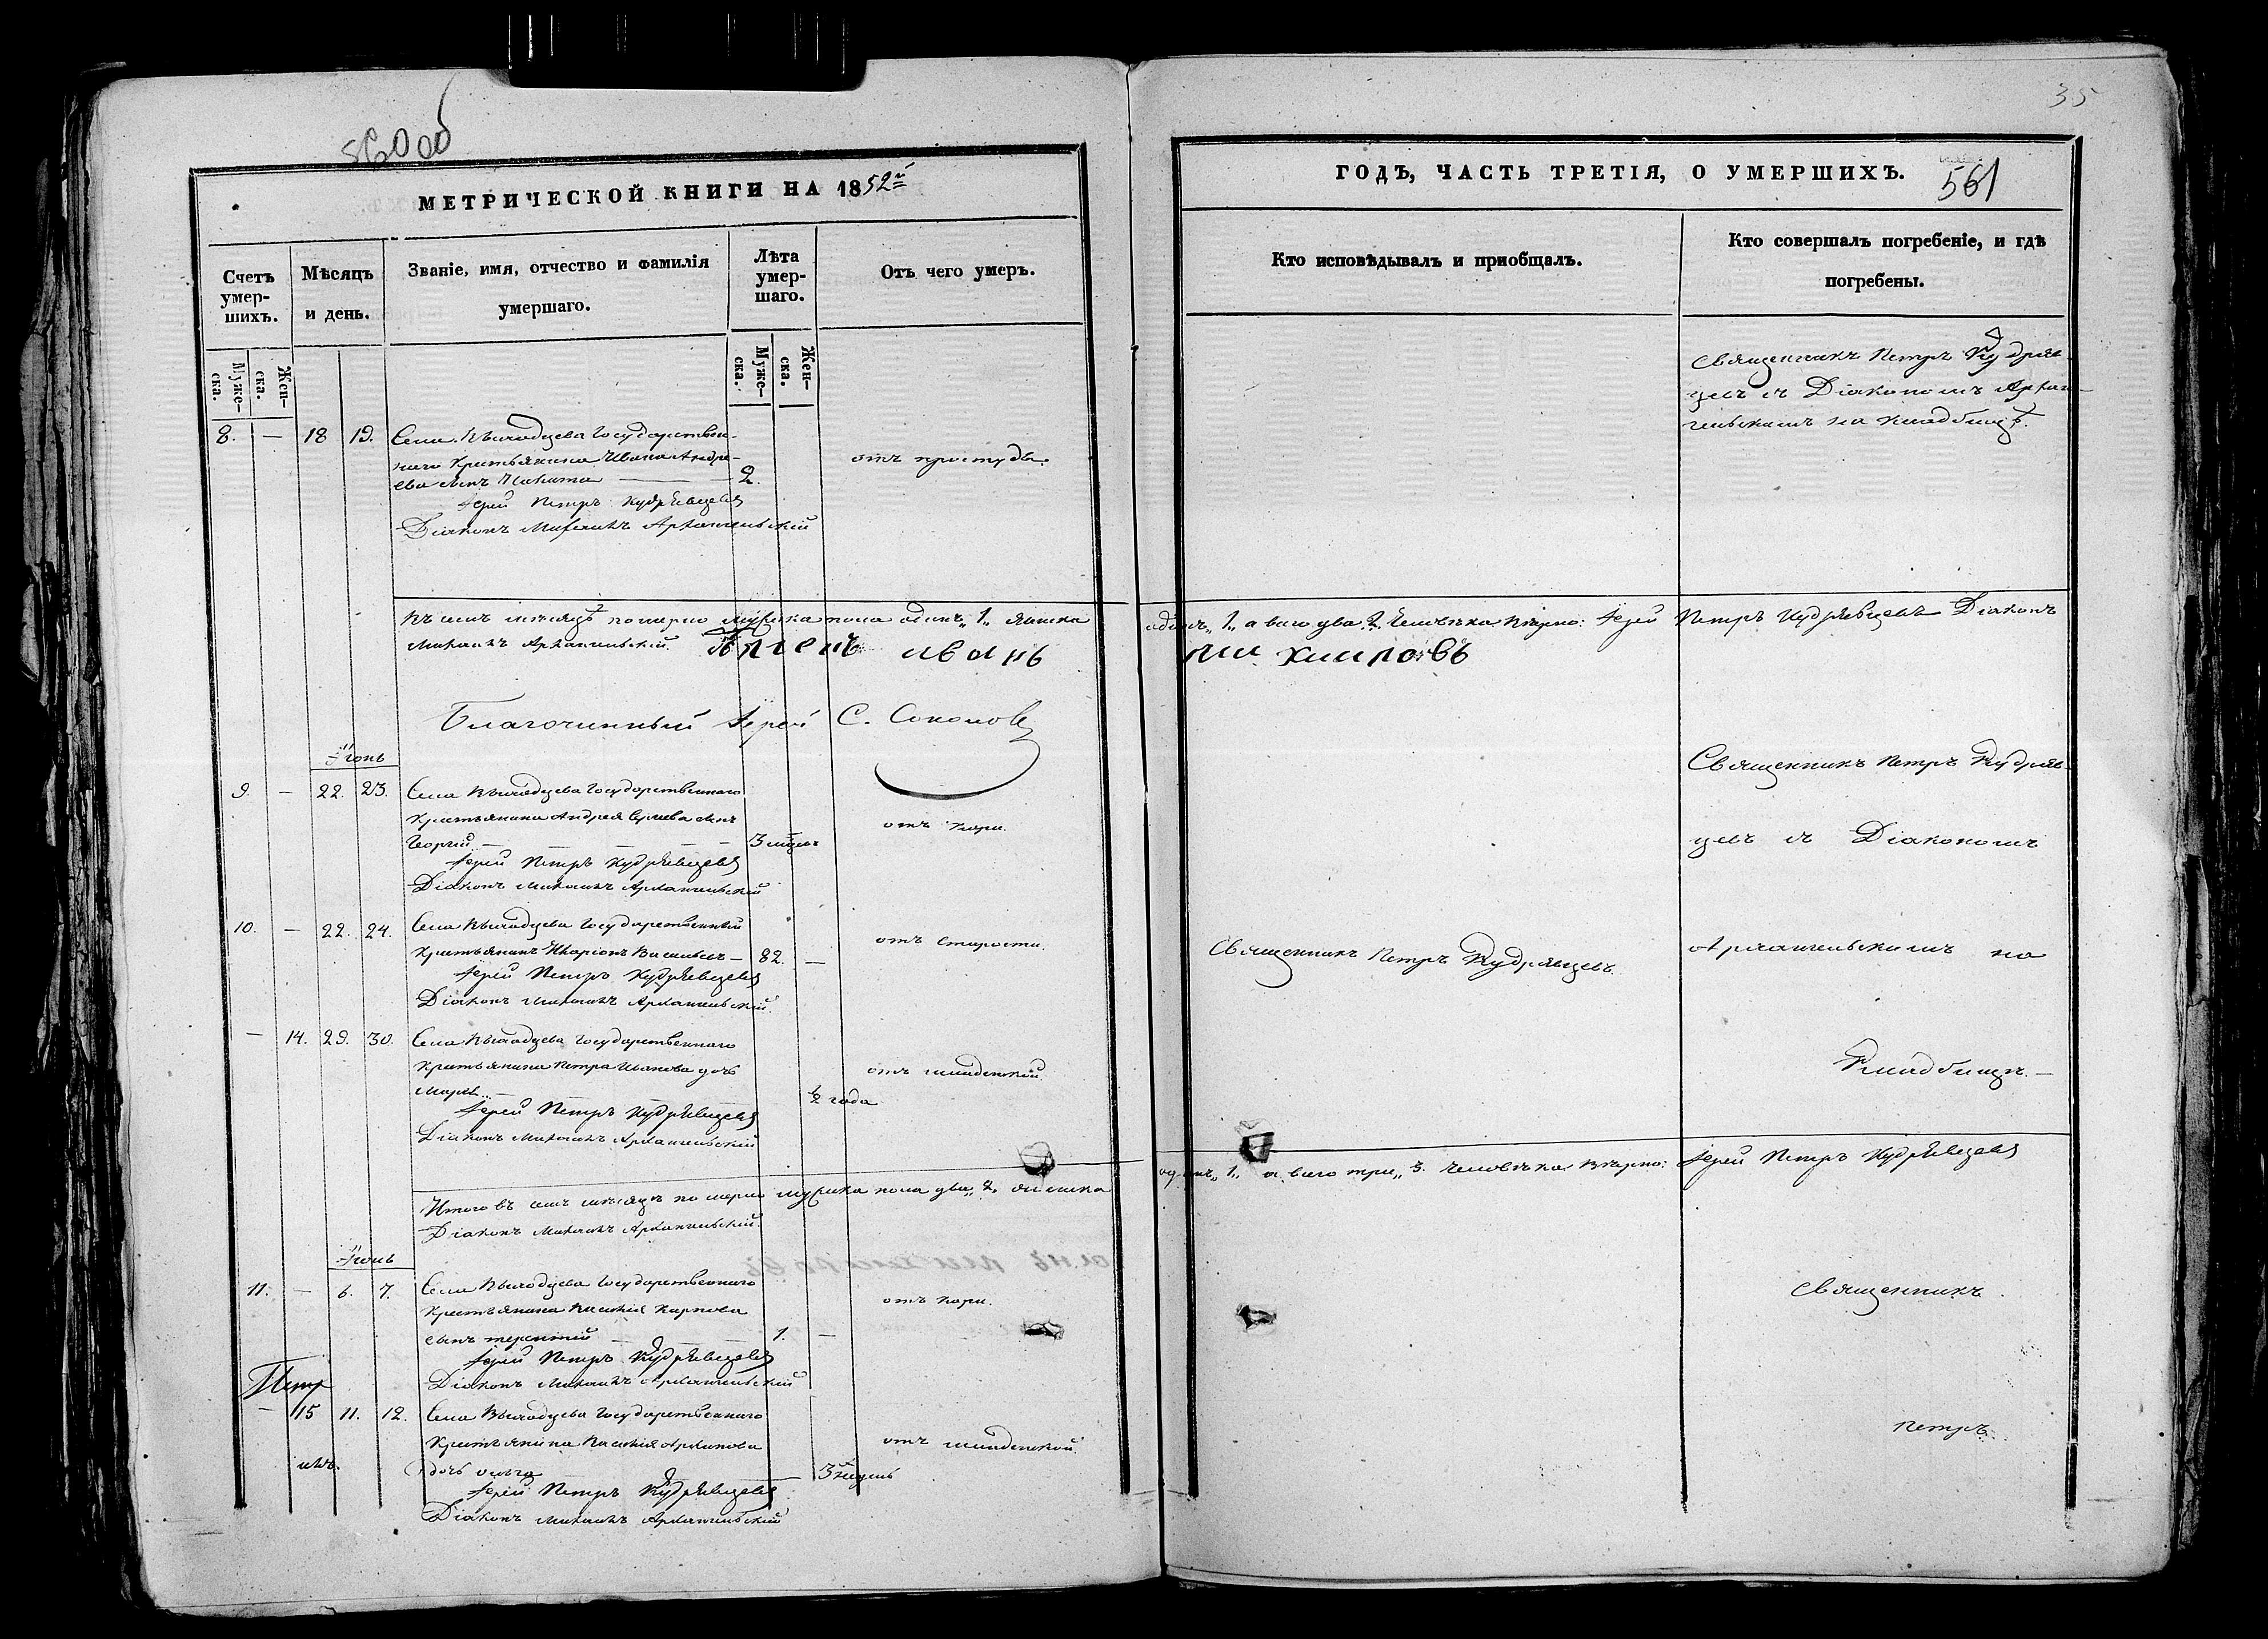 35
МЕТРИЧЕСКОЙ КНИГИ НА 1852й
ГОДЪ, ЧАСТЬ ТРЕТІЯ, О УМЕРШИХЪ.
561
Счетъ умер-шихъ.
Мѣсяцъ и день.
Званіе, имя, отчество и фамилія умершаго.
Лѣта умер-шаго.
Отъ чего умеръ.
Кто исповѣдывалъ и пріобщалъ.
Кто совершалъ погребеніе, и гдѣ погребены.
Муже-ска.
Жен-ска.
Муже-ска.
Жен-ска.
Священникъ Петръ Кудряв
цевъ съ Діакономъ Архан-
гельскимъ на кладбищѣ.
8. — 18 19. Села Выходцева Государствен-
наго Крестьянина Ивана Андре-
ева сынъ Никита — 2.
отъ простуды.
Іерей Петръ Кудрявцевъ
Діаконъ Михаилъ Архангельскій
Въ семъ мѣсяцѣ померло мужеска пола одинъ „1„ женска
одинъ „1„ а всего два „2„ человѣка вѣрно: Іерей Петръ Кудрявцевъ Діаконъ
Михаилъ Архангельскій.
иванъ
Благочинный Іерей С. Соколовъ
Іюнь
9. — 22. 23. Села Выходцева Государственнаго
Крестьянина Андрея сынъ
Георгій — — — 3 мцвъ
отъ кори.
Іерей Петръ Кудрявцевъ
Діаконъ Михаилъ Архангельскій
Священникъ Петръ Кудряв-
цевъ съ Діакономъ
Архангельскимъ на
Кладбищѣ. —
10. — 22. 24. Села Выходцева Государственный
Крестьянинъ Иларіонъ Васильевъ — 82. —
отъ старости.
Священникъ Петръ Кудрявцевъ.
Іерей Петръ Кудрявцевъ
Діаконъ Михаилъ Архангельскій.
— 14. 29. 30. Села Выходцева Государственнаго
Крестьянина Петра Иванова дочь
½ года
отъ младенской
Іерей Петръ Кудрявцевъ
Діаконъ Михаилъ Архангельскій
Итого въ семъ мѣсяцѣ померло мужеска пола два „2„ женска
одинъ „1„ а всего три „3. человѣка вѣрно: Іерей Петръ Кудрявцевъ
Діаконъ Михаилъ Архангельскій.
11. — 6. 7. Села Выходцева Государственнаго
Крестьянина Василія Карпова
сынъ терентій — — 1. —
отъ кори.
Іерей Петръ Кудрявцевъ
Діаконъ Михаилъ Архангельскій
Священникъ
Петръ
— 15 11. 12. Села Выходцева Государственнаго
Крестьянина Василія Архипова
дочь ольга — 3 недѣль
отъ младенской.
Іерей Петръ Кудрявцевъ
Діаконъ Михаилъ Архангельскій
Петръ